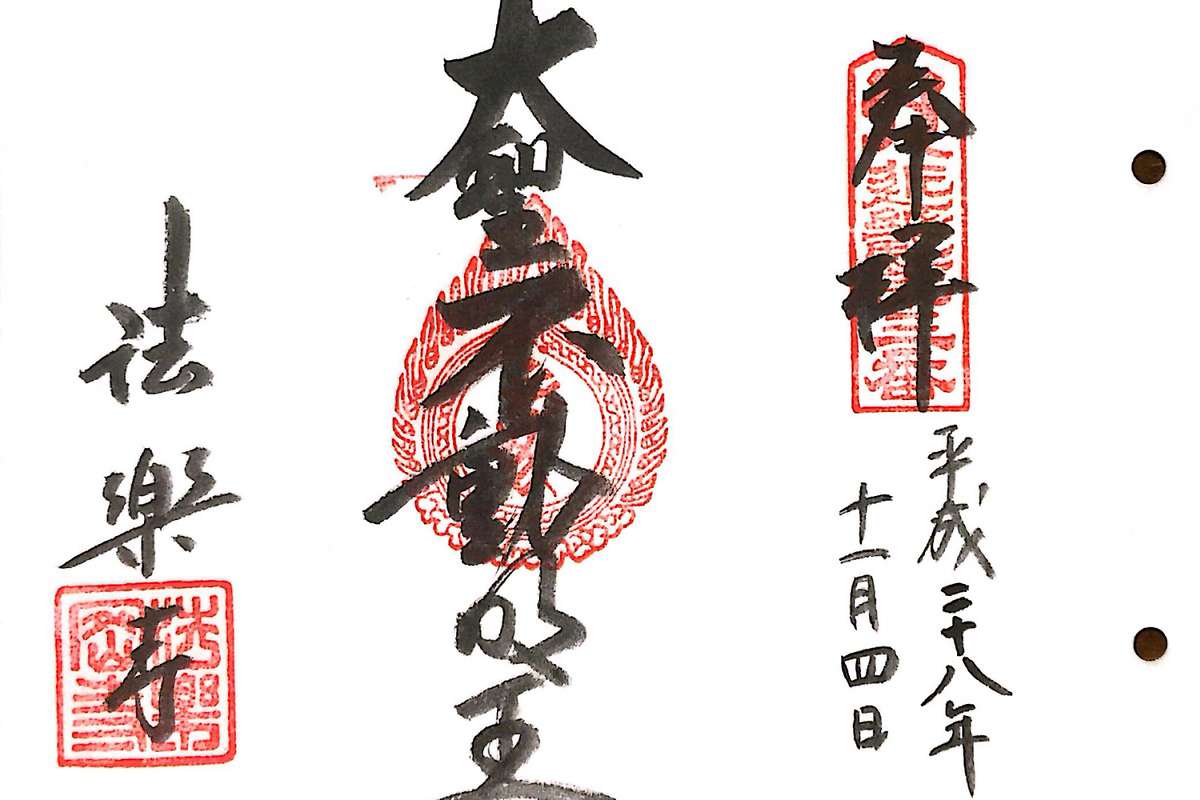 奉拝
平成二十八年
十一月四日
大聖不動明王
法楽寺